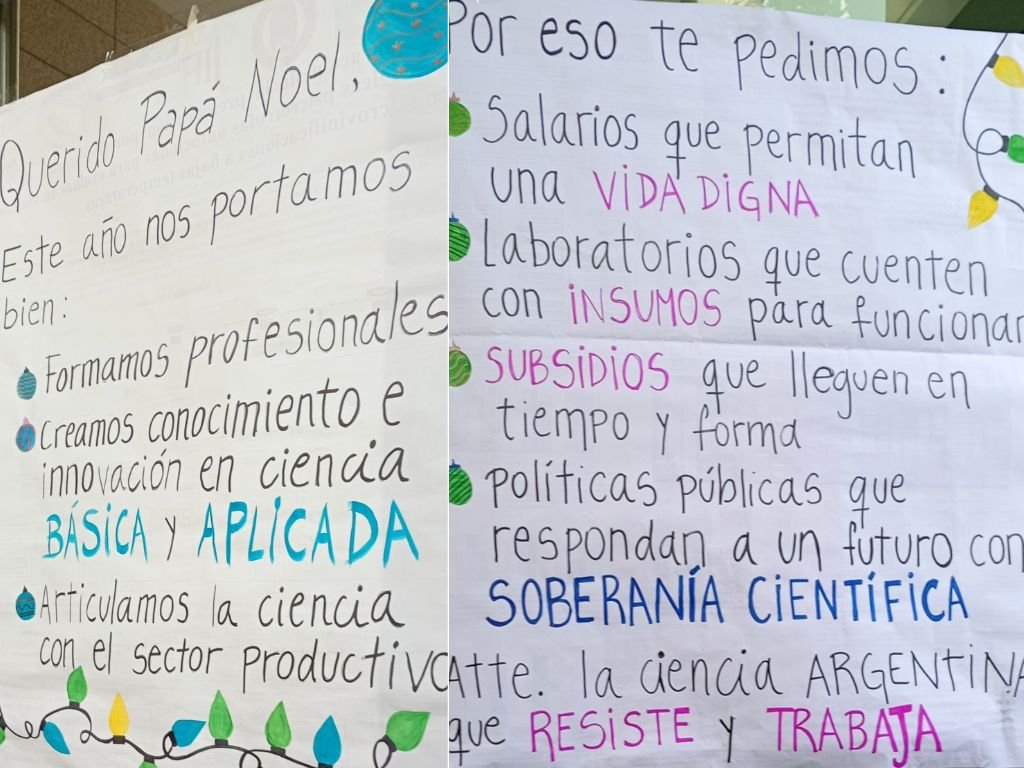 Querido Papá Noel,
Este año nos portamos
bien:
Formamos profesionales
Creamos conocimiento e
innovación en ciencia
BÁSICA y APLICADA
Articulamos la ciencia
con el sector productivo
Por eso te pedimos:
Salarios que permitan
una VIDA DIGNA
Laboratorios que cuenten
con INSUMOS para funcionar
SUBSIDIOS que lleguen en
tiempo y forma
políticas públicas que
respondan a un futuro con
SOBERANÍA CIENTÍFICA
Atte. la ciencia ARGENTINA
que RESISTE y TRABAJA